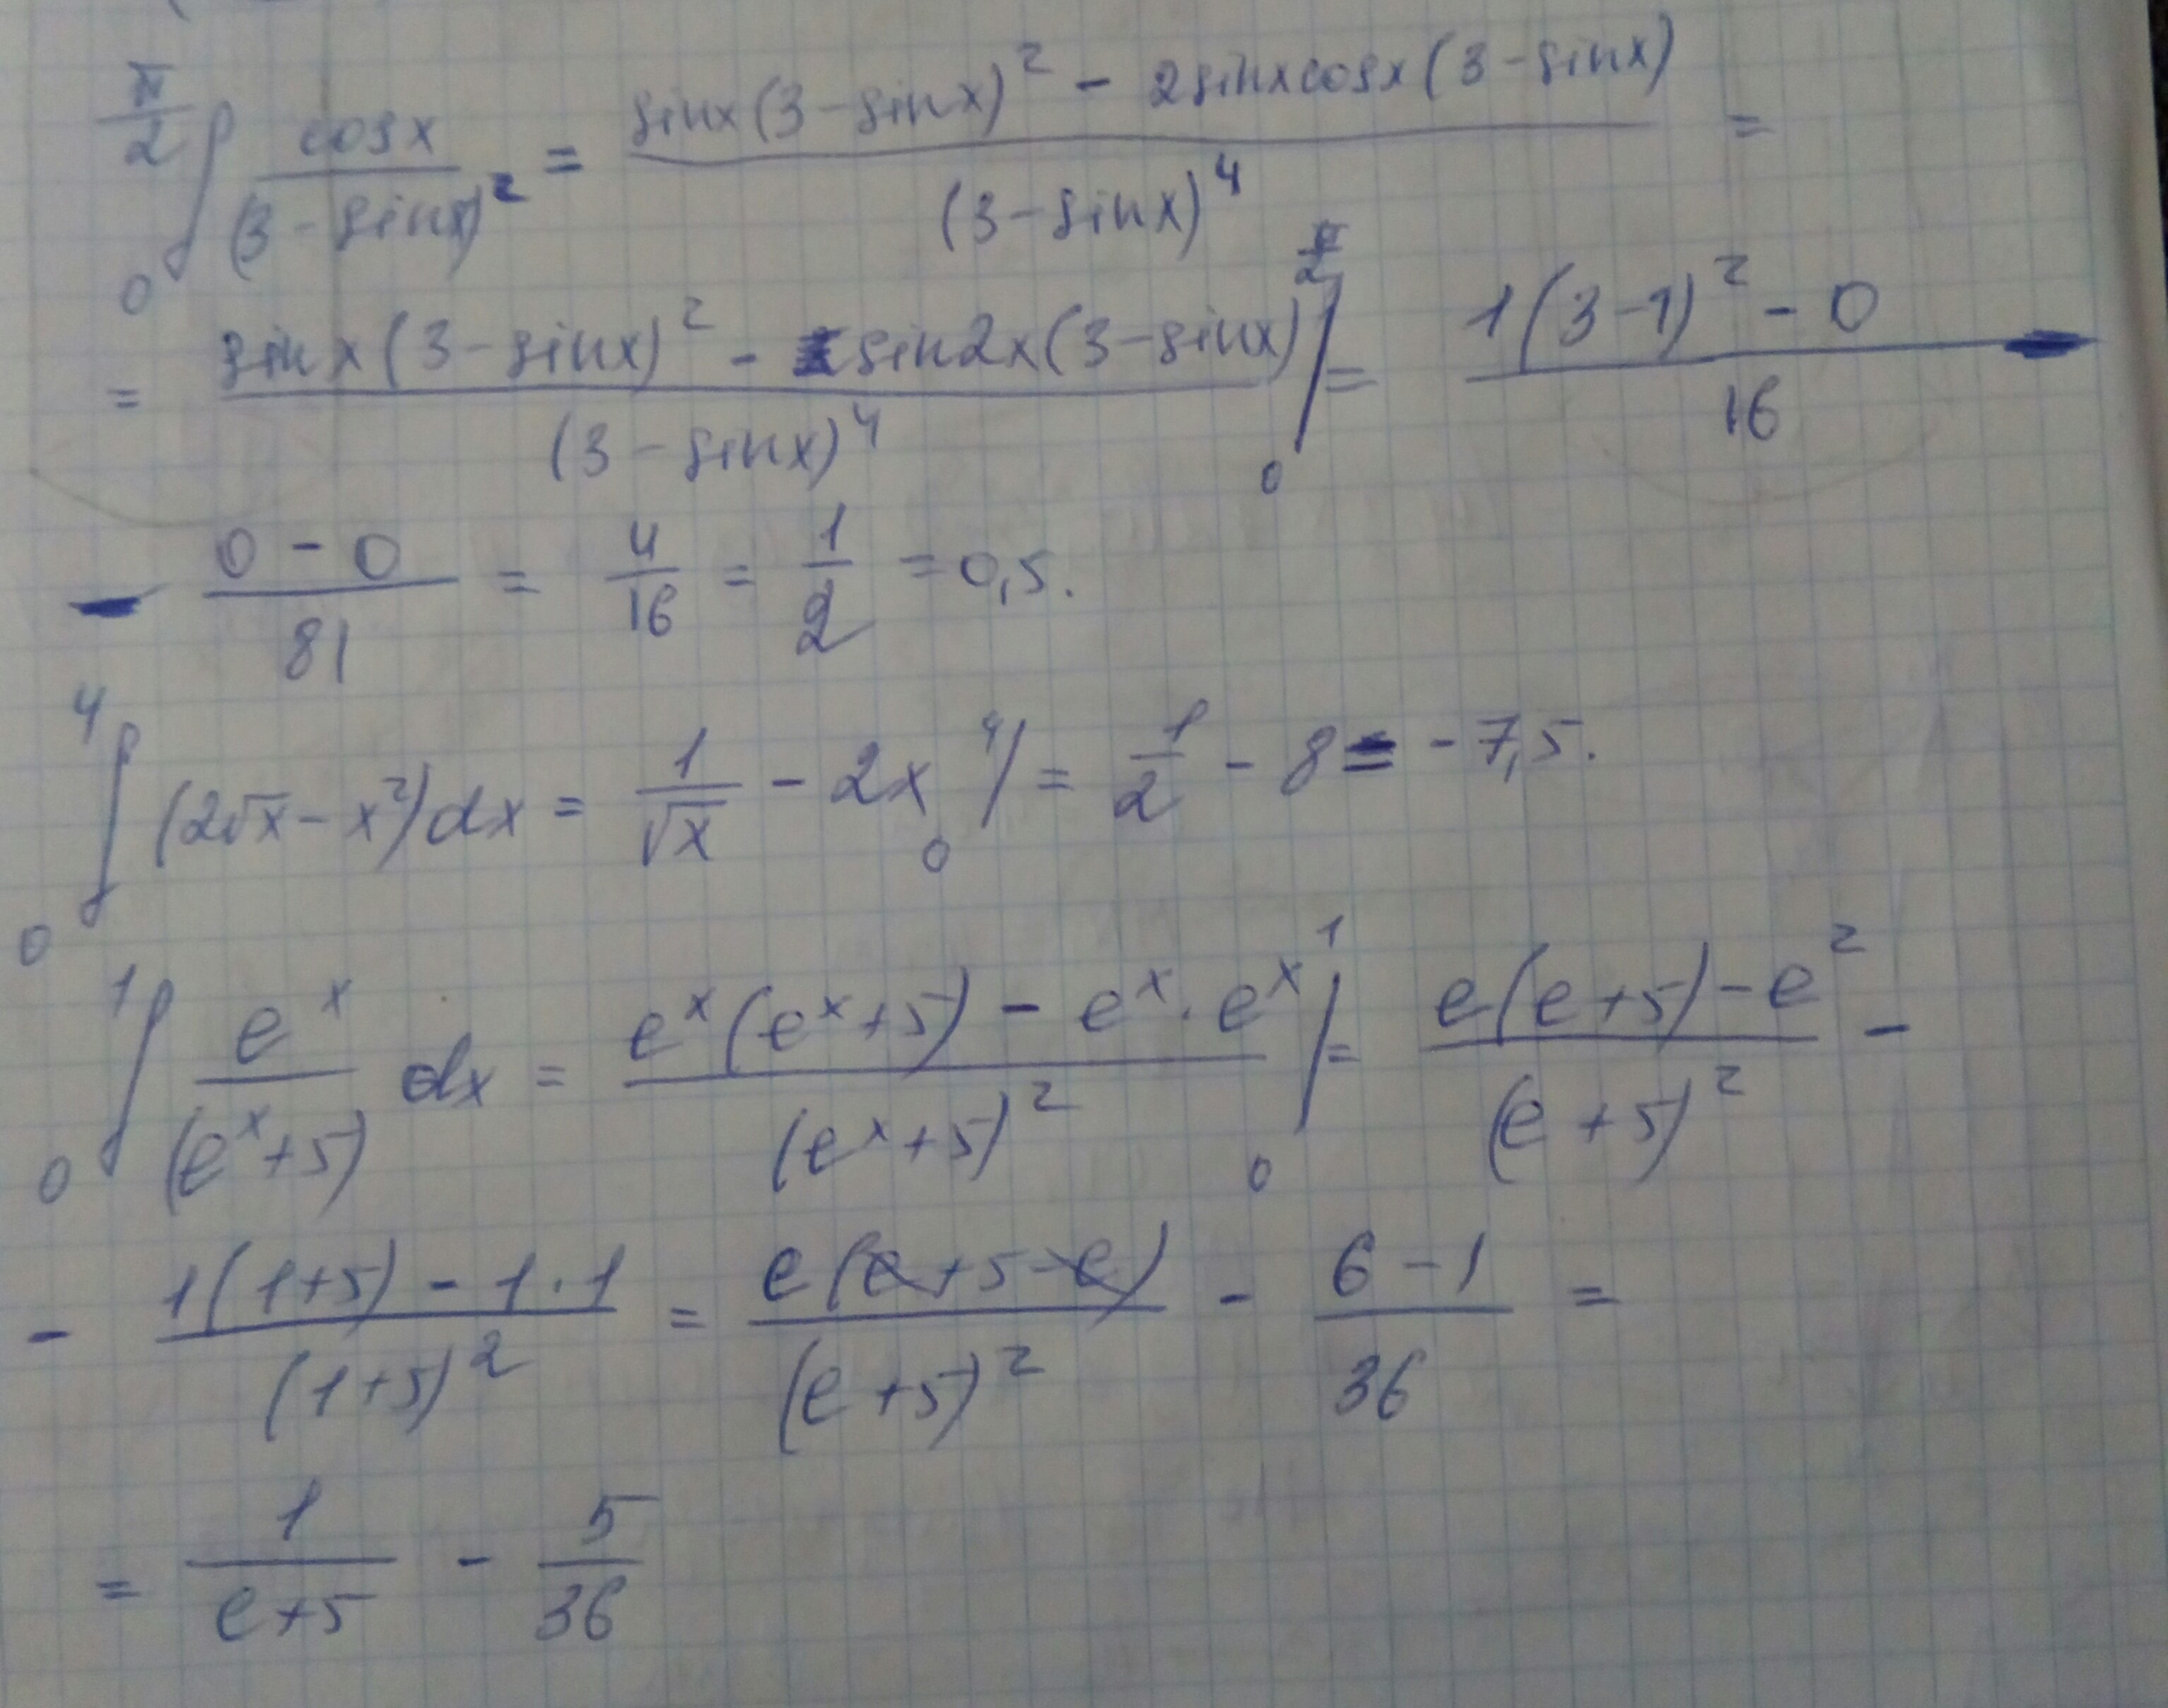 ∫₀^(π/2) cosx/(3-sinx)² = (sinx(3-sinx)² - 2sinxcosx(3-sinx))/(3-sinx)⁴ =
= (sinx(3-sinx)² - sin2x(3-sinx))/(3-sinx)⁴ |₀^(π/2) = (1(3-1)² - 0)/16 -
- (0-0)/81 = 4/16 = 1/2 = 0,5.
∫₀⁴ (2√x - x²)dx = 1/√x - 2x |₀⁴ = 1/2 - 8 = -7,5.
∫₀¹ eˣ/(eˣ+5) dx = (eˣ(eˣ+5) - eˣ·eˣ)/(eˣ+5)² |₀¹ = (e(e+5) - e²)/(e+5)² -
- (1(1+5) - 1·1)/(1+5)² = e(e+5-e)/(e+5)² - (6-1)/36 =
= 1/(e+5) - 5/36